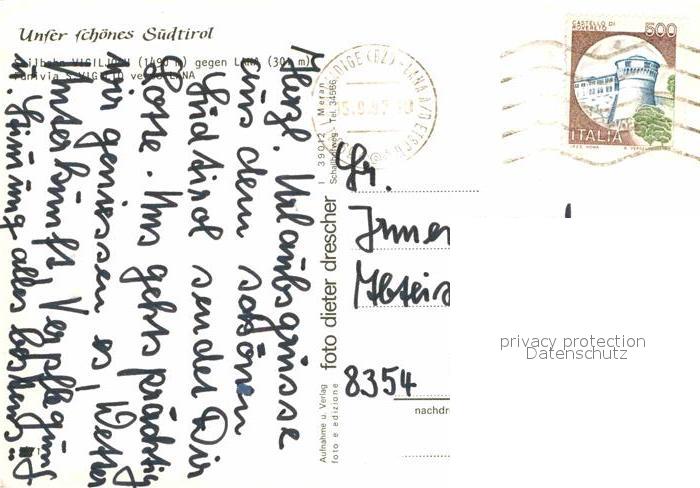 Unser schönes Südtirol
Seilbahn VIGILJOCH (1490 m) gegen LANA (301 m)
Funivia S. VIGILIO verso LANA
Herzl. Urlaubsgrüsse
aus dem schönen
Südtirol sendet Dir
Uns geht's prächtig
wir geniessen es, Wetter
Unterkunft Verpflegung
u. Stimmung alles bestens.
I 39012 Meran
Schallhofweg - Tel. 34666
foto dieter drescher
Aufnahme u. Verlag
foto e edizione
LANA
CASTELLO DI
ROVERETO
500
ITALIA
I.P.Z.S. ROMA
Fr.
8354
nachdr
privacy protection
Datenschutz